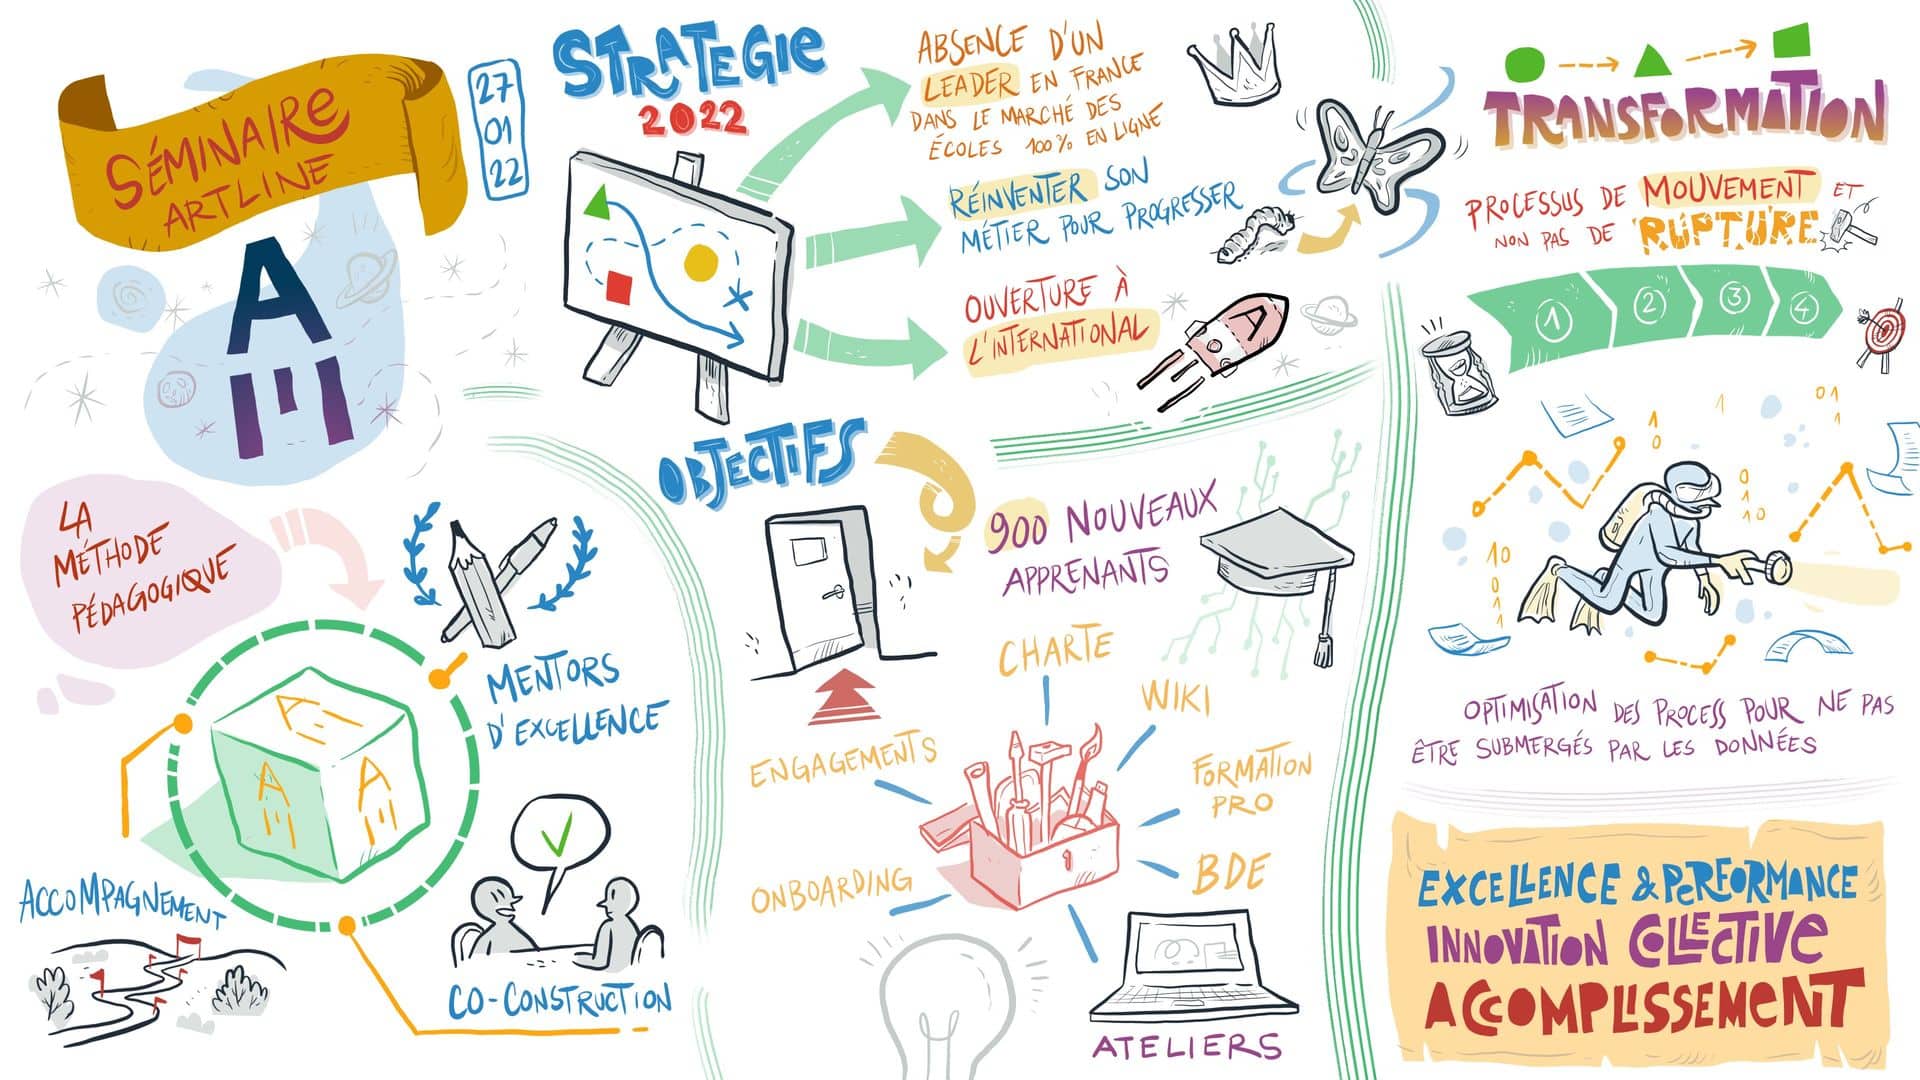 SÉMINAIRE
ARTLINE
27
01
22
A
STRATEGIE
2022
ABSENCE D'UN
LEADER EN FRANCE
DANS LE MARCHÉ DES
ÉCOLES 100% EN LIGNE
RÉINVENTER SON
MÉTIER POUR PROGRESSER
OUVERTURE À
L'INTERNATIONAL
A
TRANSFORMATION
PROCESSUS DE MOUVEMENT ET
NON PAS DE RUPTURE
1 2 3 4
LA
MÉTHODE
PÉDAGOGIQUE
MENTORS
D'EXCELLENCE
A
A
A
ACCOMPAGNEMENT
CO-CONSTRUCTION
OBJECTIFS
900 NOUVEAUX
APPRENANTS
CHARTE
WIKI
ENGAGEMENTS
FORMATION
PRO
ONBOARDING
BDE
ATELIERS
1
0
1
01
1
0
1
0
10
10
0
1
1
OPTIMISATION DES PROCESS POUR NE PAS
ÊTRE SUBMERGÉS PAR LES DONNÉES
EXCELLENCE & PERFORMANCE
INNOVATION COLLECTIVE
ACCOMPLISSEMENT